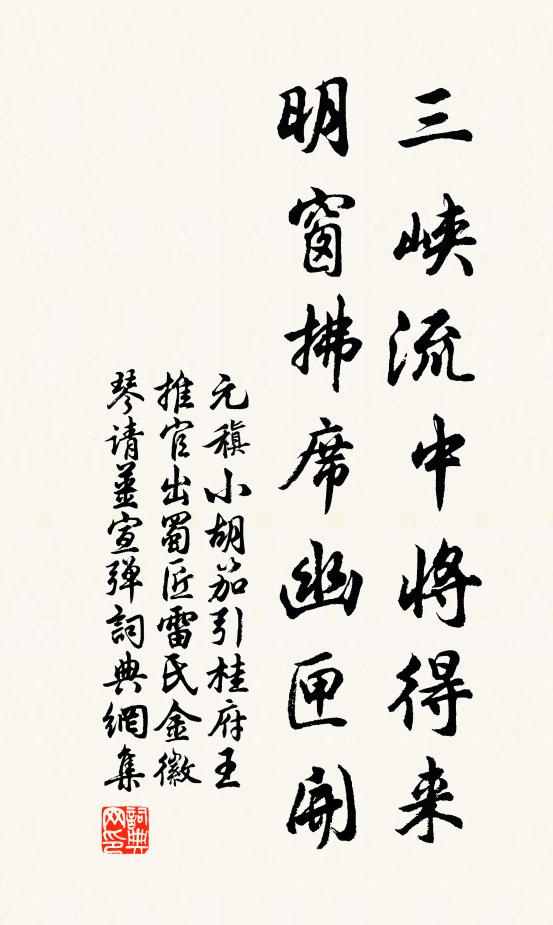 三峡流中将得来
明窗拂席幽匣開
元稹小胡笳引桂府王
推官出蜀匠雷氏金徽
琴请薑宣弹詞典網集
詞典网印